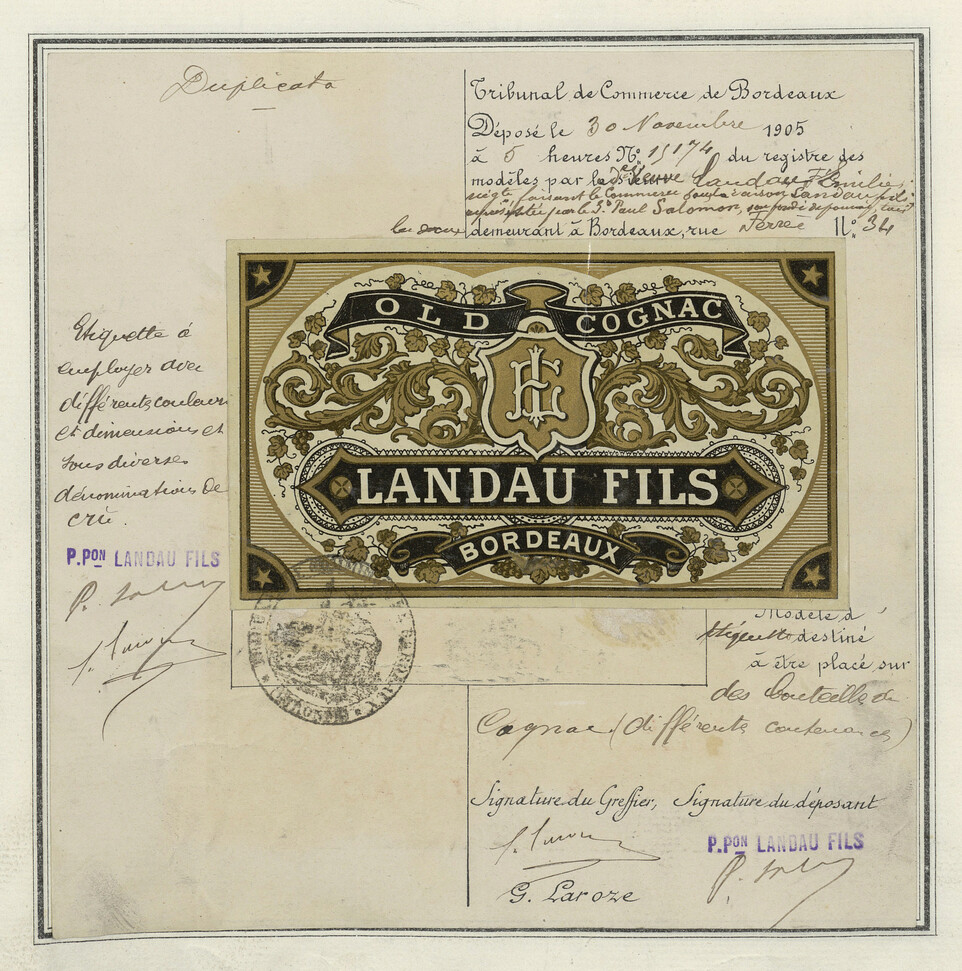 Duplicata
Tribunal de Commerce de Bordeaux
Déposé le 30 Novembre 1905
à 5 heures No. 15174 du registre des
modèles par Veuve Landau Emilie,
faisant le Commerce sous la raison Landau fils
par le Sr. Paul Salomon,
demeurant à Bordeaux, rue Ferrère No. 34
OLD COGNAC
LANDAU FILS
BORDEAUX
Etiquette à
employer avec
différentes couleurs
et dimensions et
sous diverses
dénominations de
crû.
P.PON LANDAU FILS
Modèle d'
étiquette destiné
à être placé sur
des bouteilles de
Cognac (différentes contenances)
Signature du Greffier, Signature du déposant
P.PON LANDAU FILS
G. Laroze